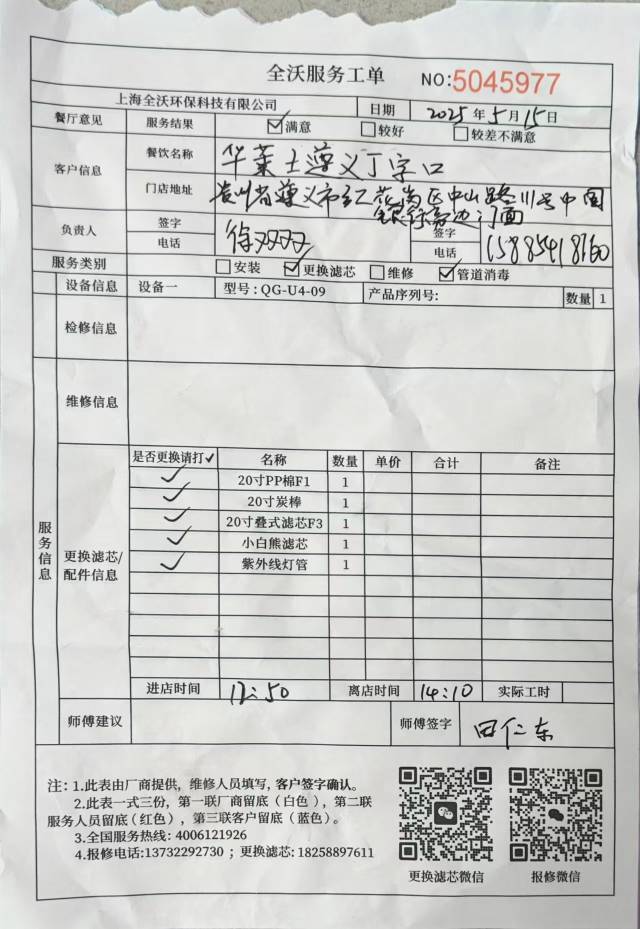 全沃服务工单 NO:5045977
上海全沃环保科技有限公司 日期 2025年5月15日
餐厅意见 服务结果 ☑满意 ☐较好 ☐较差不满意
客户信息 餐饮名称 华莱士遵义丁字口
门店地址 贵州省遵义市红花岗区中山路川号中国
银行旁边门面
负责人 签字 徐双双 签字
电话 电话 15885418160
服务类别 ☐安装 ☑更换滤芯 ☐维修 ☑管道消毒
设备信息 设备一 型号:QG-U4-09 产品序列号: 数量 1
检修信息
维修信息
服务信息
更换滤芯/配件信息
是否更换请打✓ 名称 数量 单价 合计 备注
✓ 20寸PP棉F1 1
✓ 20寸炭棒 1
✓ 20寸叠式滤芯F3 1
✓ 小白熊滤芯 1
✓ 紫外线灯管 1
进店时间 12:50 离店时间 14:10 实际工时
师傅建议 师傅签字 田仁东
注:1.此表由厂商提供,维修人员填写,客户签字确认。
2.此表一式三份,第一联厂商留底(白色),第二联
服务人员留底(红色),第三联客户留底(蓝色)。
3.全国服务热线: 4006121926
4.报修电话:13732292730 ; 更换滤芯: 18258897611
更换滤芯微信 报修微信